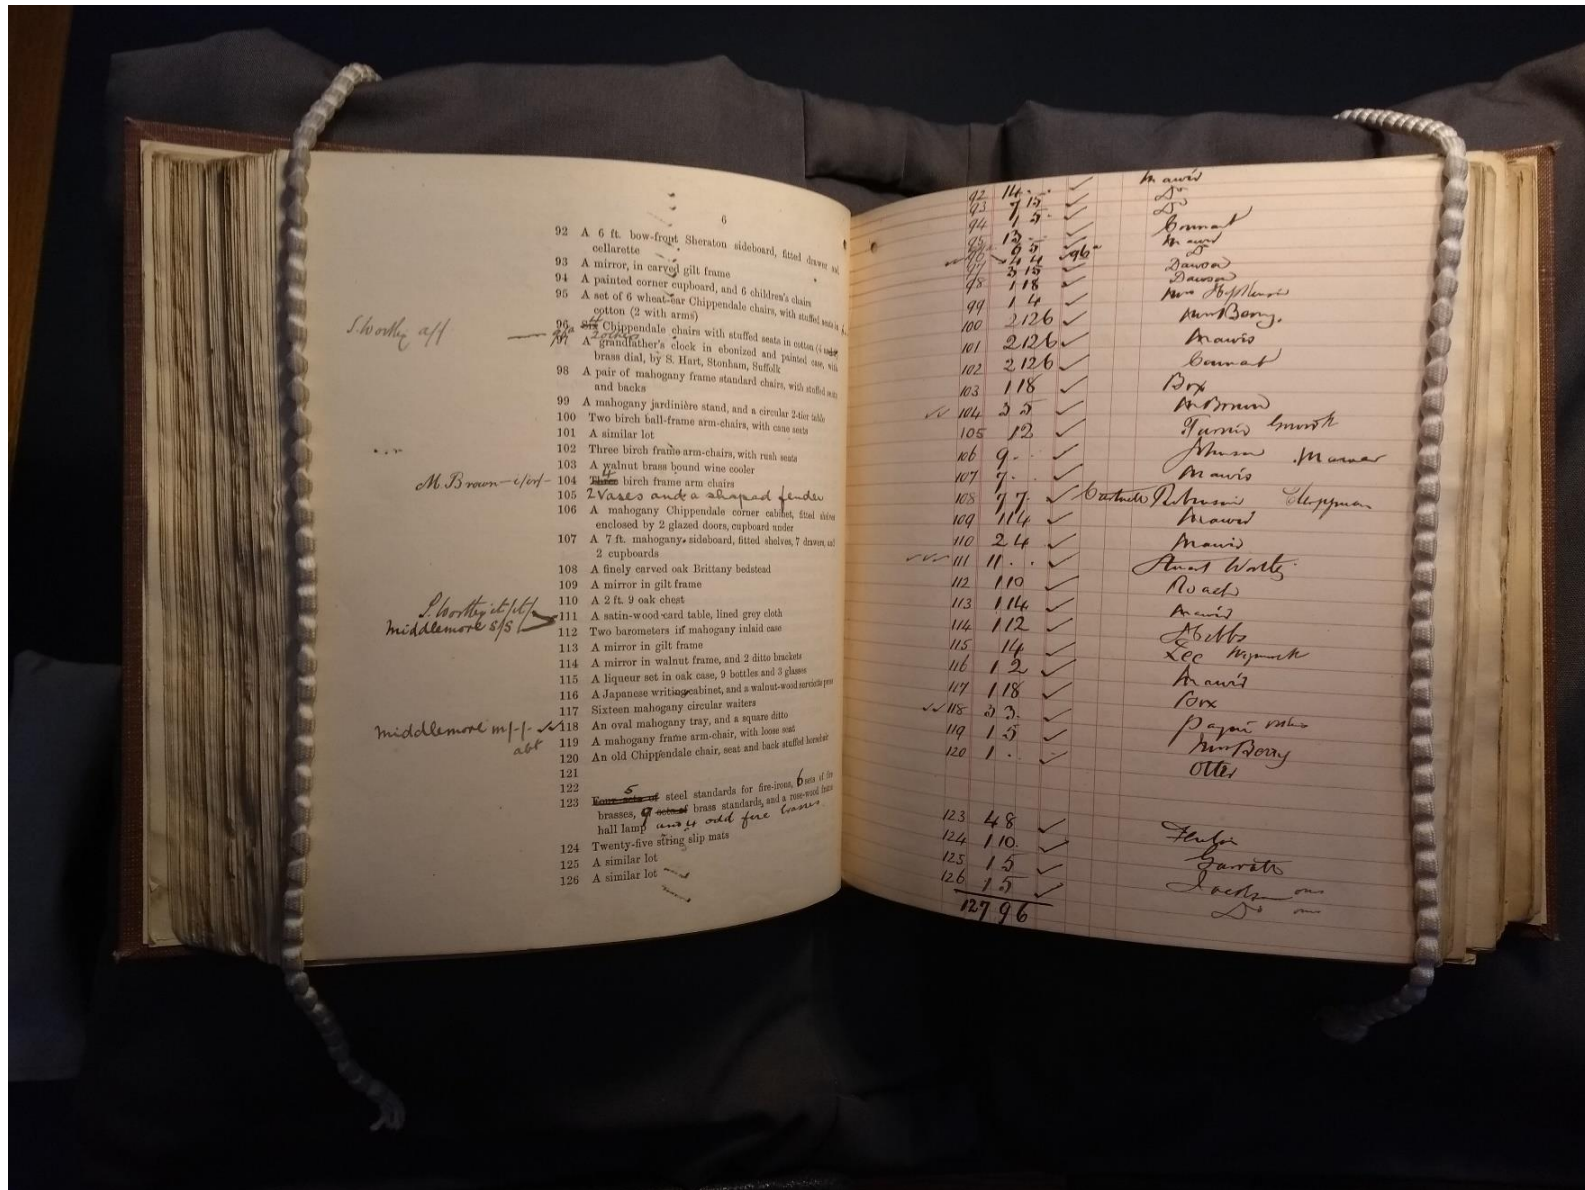 6
92 A 6 ft. bow-front Sheraton sideboard, fitted drawer and
cellarette
93 A mirror, in carved gilt frame
94 A painted corner cupboard, and 6 children's chairs
95 A set of 6 wheat-ear Chippendale chairs, with stuffed seats in
cotton (2 with arms)
S. Worthy a/f
96 Six 4 Chippendale chairs with stuffed seats in cotton
96a 2 others
97 A grandfather's clock in ebonized and painted case, with
brass dial, by S. Hart, Stonham, Suffolk
98 A pair of mahogany frame standard chairs, with stuffed seats
and backs
99 A mahogany jardinière stand, and a circular 2-tier table
100 Two birch ball-frame arm-chairs, with cane seats
101 A similar lot
102 Three birch frame arm-chairs, with rush seats
103 A walnut brass bound wine cooler
M. Brown
104 Three 4 birch frame arm chairs
105 2 Vases and a shaped fender
106 A mahogany Chippendale corner cabinet, fitted shelves
enclosed by 2 glazed doors, cupboard under
107 A 7 ft. mahogany sideboard, fitted shelves, 7 drawers, and
2 cupboards
108 A finely carved oak Brittany bedstead
109 A mirror in gilt frame
110 A 2 ft. 9 oak chest
S. Worthy
Middlemore s/s
111 A satin-wood card table, lined grey cloth
112 Two barometers in mahogany inlaid case
113 A mirror in gilt frame
114 A mirror in walnut frame, and 2 ditto brackets
115 A liqueur set in oak case, 9 bottles and 3 glasses
116 A Japanese writing cabinet, and a walnut-wood
117 Sixteen mahogany circular waiters
Middlemore
abt
118 An oval mahogany tray, and a square ditto
119 A mahogany frame arm-chair, with loose seat
120 An old Chippendale chair, seat and back stuffed horsehair
121
122
123 Four sets of 5 steel standards for fire-irons, 6 sets of fire
brasses, 9 sets of brass standards, and a rose-wood frame
hall lamp and 4 odd fire brasses
124 Twenty-five string slip mats
125 A similar lot
126 A similar lot
92 14 . . Mawis
93 7 15 Do
94 1 5 . Do
95 13
96 96a
97 3 15 Dawson
98 1 18
99 1 4
100 2 12 6 Mrs Berry
101 2 12 6 Mawis
102 2 12 6
103 1 18 Box
104 3 5 M Brown
105 12
106 9 . . Johnson
107 7 . . Mawis
108 7 7 . Robinson Chappman
109 1 14 Mawis
110 2 4 Mawis
111 11 . . Stuart Wortley
112 1 10 Roach
113 1 14 Mawis
114 1 12 Hibbs
115 14 Lee
116 1 2 Mawis
117 1 18 Box
118 3 3
119 1 5 Mrs Berry
120 1 . . Otter
123 4 8
124 1 10 Garratt
125 1 5 Jackson
126 1 5 Do
127 9 6